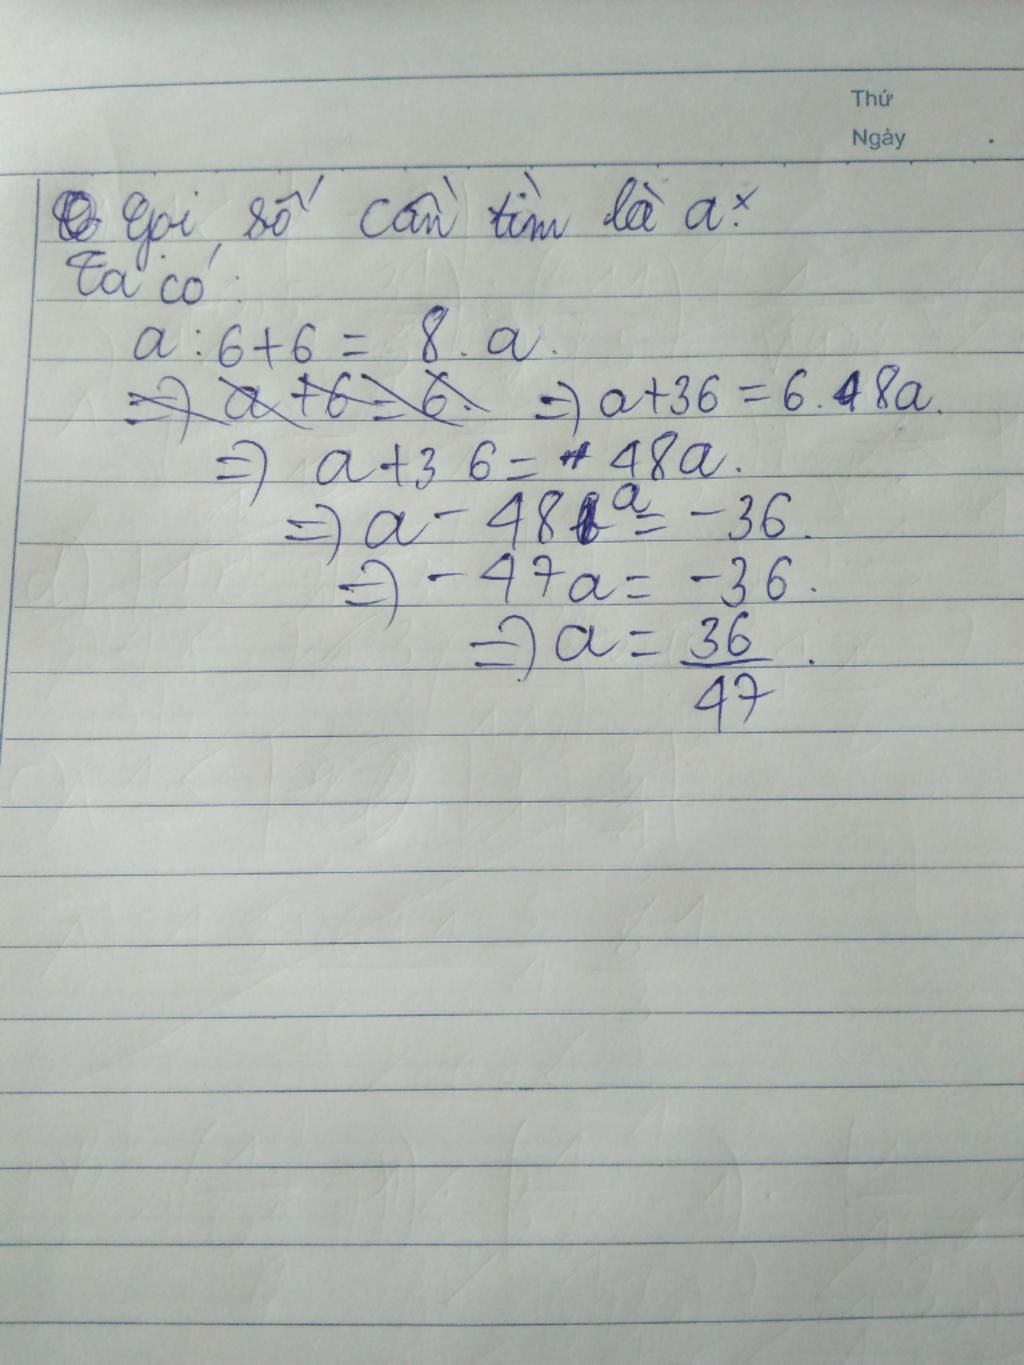 Thứ
Ngày
Gọi số cần tìm là a.
Ta có:
a : 6 + 6 = 8 . a.
=) a + 6 = 6. =) a + 36 = 6 . 8a.
=) a + 36 = 48a.
=) a - 48a = -36.
=) -47a = -36.
=) a = 36/47.